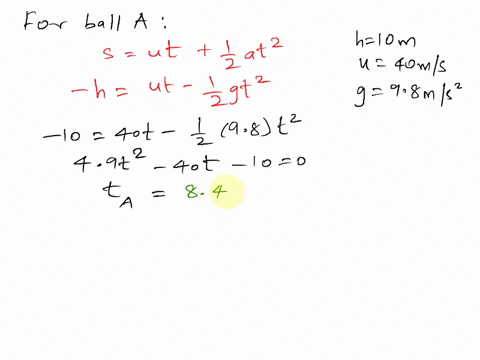 For ball A :
s = ut + 1/2 at²
-h = ut - 1/2 gt²
h=10m
u = 40m/s
g = 9.8m/s²
-10 = 40t - 1/2 (9.8) t²
4.9t² - 40t - 10 = 0
t_A = 8.4